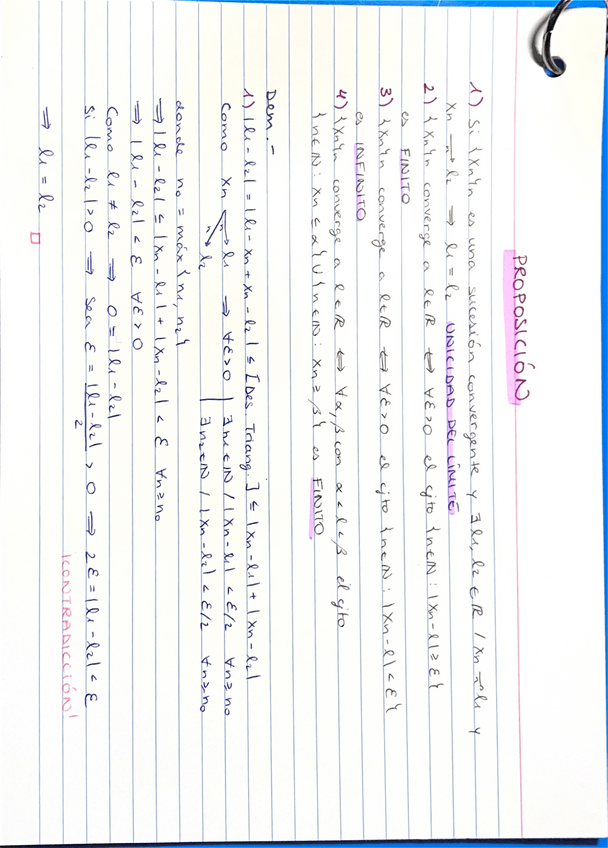 PROPOSICIÓN
1) Si {xn}n es una sucesión convergente y ∃ l1, l2 ∈ ℝ / xn →n l1 y
xn →n l2 ⇒ l1 = l2 UNICIDAD DEL LÍMITE
2) {xn}n converge a l∈ℝ ⇔ ∀ε>0 el cjto {n∈ℕ: |xn-l|≥ε}
es FINITO
3) {xn}n converge a l∈ℝ ⇔ ∀ε>0 el cjto {n∈ℕ: |xn-l|<ε}
es INFINITO
4) {xn}n converge a l∈ℝ ⇔ ∀α,β con α<l<β el cjto
{n∈ℕ: xn≤α}∪{n∈ℕ: xn≥β} es FINITO
Dem.-
1) |l1-l2| = |l1-xn+xn-l2| ≤ [Des. Triang.] ≤ |xn-l1| + |xn-l2|
Como xn →n l1 ⇒ ∀ε>0 | ∃n1∈ℕ / |xn-l1| < ε/2 ∀n≥n0
→n l2 | ∃n2∈ℕ / |xn-l2| < ε/2 ∀n≥n0
donde n0 = máx{n1, n2}
⇒ |l1-l2| ≤ |xn-l1| + |xn-l2| < ε ∀n≥n0
⇒ |l1-l2| < ε ∀ε>0
Como l1 ≠ l2 ⇒ 0 = |l1-l2|
Si |l1-l2|>0 ⇒ Sea ε = |l1-l2|/2 > 0 ⇒ 2ε = |l1-l2| < ε
¡CONTRADICCIÓN!
⇒ l1 = l2 □